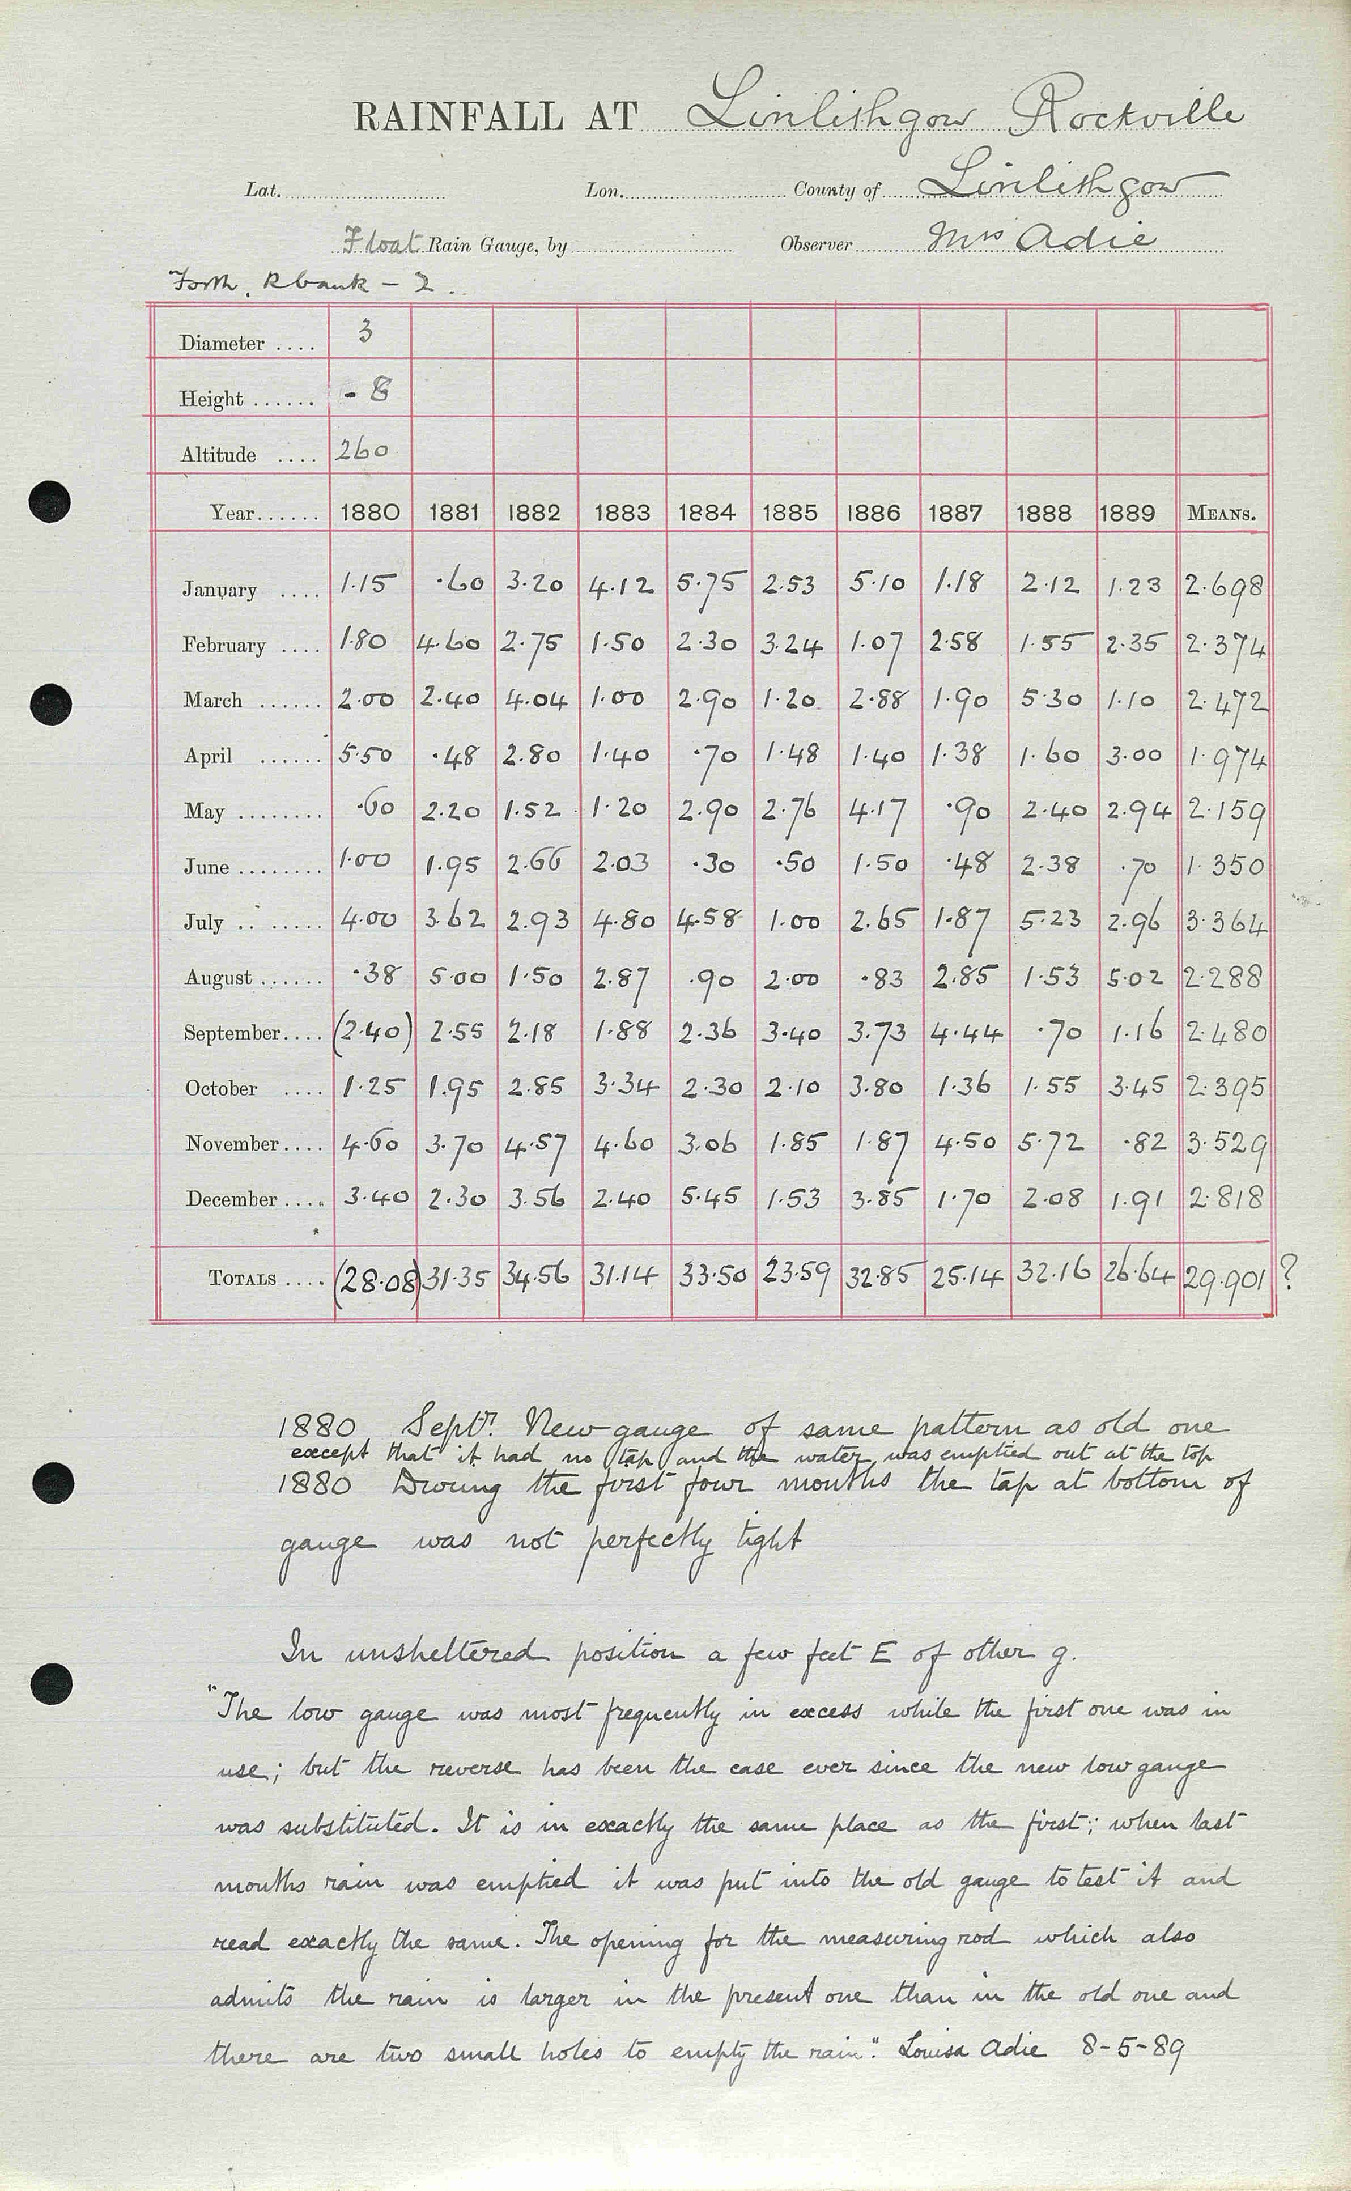 RAINFALL AT Linlithgow Rockville
Lat. Lon. County of Linlithgow
Float Rain Gauge, by Observer Mrs Adie
Forth. R bank - 2.
Diameter .... 3
Height ...... - 8
Altitude .... 260
Year...... 1880 1881 1882 1883 1884 1885 1886 1887 1888 1889 MEANS.
January .... 1.15 .60 3.20 4.12 5.75 2.53 5.10 1.18 2.12 1.23 2.698
February .... 1.80 4.60 2.75 1.50 2.30 3.24 1.07 2.58 1.55 2.35 2.374
March ...... 2.00 2.40 4.04 1.00 2.90 1.20 2.88 1.90 5.30 1.10 2.472
April ...... 5.50 .48 2.80 1.40 .70 1.48 1.40 1.38 1.60 3.00 1.974
May ........ .60 2.20 1.52 1.20 2.90 2.76 4.17 .90 2.40 2.94 2.159
June ........ 1.00 1.95 2.66 2.03 .30 .50 1.50 .48 2.38 .70 1.350
July .. ..... 4.00 3.62 2.93 4.80 4.58 1.00 2.65 1.87 5.23 2.96 3.364
August ...... .38 5.00 1.50 2.87 .90 2.00 .83 2.85 1.53 5.02 2.288
September.... (2.40) 2.55 2.18 1.88 2.36 3.40 3.73 4.44 .70 1.16 2.480
October .... 1.25 1.95 2.85 3.34 2.30 2.10 3.80 1.36 1.55 3.45 2.395
November.... 4.60 3.70 4.57 4.60 3.06 1.85 1.87 4.50 5.72 .82 3.529
December .... 3.40 2.30 3.56 2.40 5.45 1.53 3.85 1.70 2.08 1.91 2.818
TOTALS .... (28.08) 31.35 34.56 31.14 33.50 23.59 32.85 25.14 32.16 26.64 29.901 ?
1880 Septr. New gauge of same pattern as old one
except that it had no tap and the water was emptied out at the top
1880 During the first four months the tap at bottom of
gauge was not perfectly tight
In unsheltered position a few feet E of other g.
"The low gauge was most frequently in excess while the first one was in
use; but the reverse has been the case ever since the new low gauge
was substituted. It is in exactly the same place as the first; when last
months rain was emptied it was put into the old gauge to test it and
read exactly the same. The opening for the measuring rod which also
admits the rain is larger in the present one than in the old one and
there are two small holes to empty the rain." Louisa Adie 8-5-89